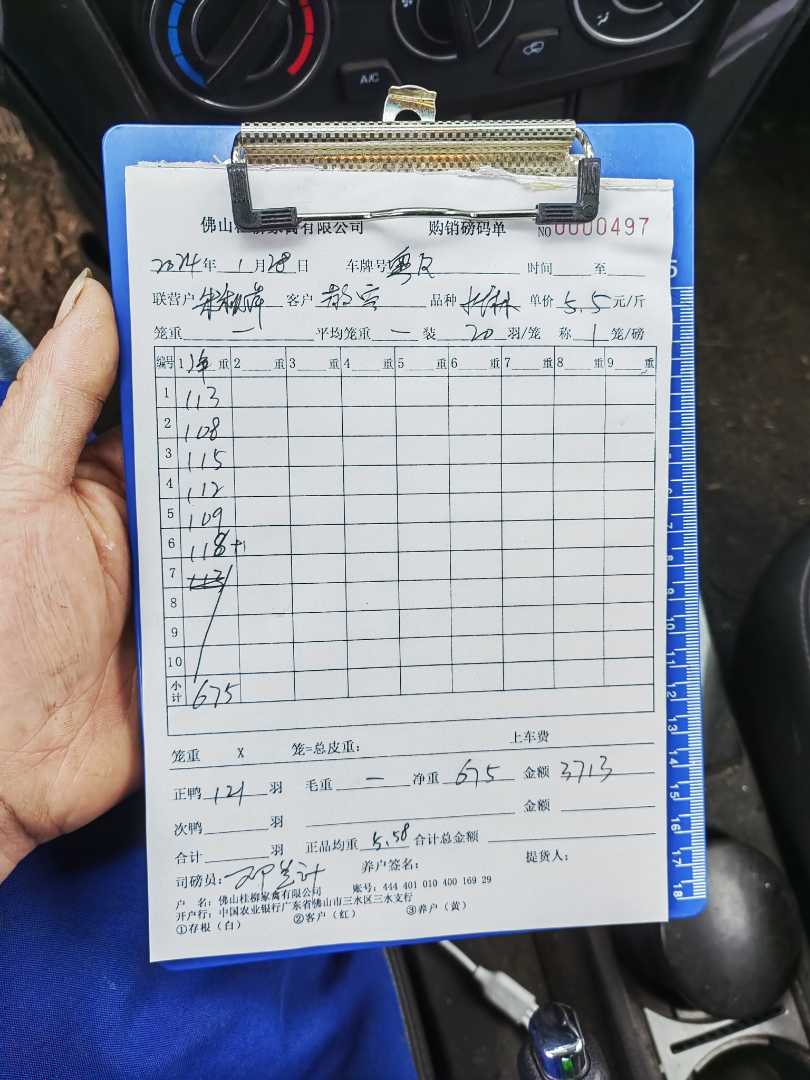 A/C
佛山桂柳家禽有限公司 购销磅码单 NO 0000497
2024年1月28日 车牌号 粤 时间 至
联营户 客户 品种 单价 5.5 元/斤
笼重 — 平均笼重 — 装 20 羽/笼 称 1 笼/磅
编号 1 净 重 2 重 3 重 4 重 5 重 6 重 7 重 8 重 9 重
1 113
2 108
3 115
4 112
5 109
6 118 +1
7
8
9
10
小计 675
笼重 X 笼=总皮重: 上车费
正鸭 121 羽 毛重 — 净重 675 金额 3713
次鸭 羽 金额
合计 羽 正品均重 5.58 合计总金额
司磅员: 养户签名: 提货人:
户 名: 佛山桂柳家禽有限公司 账号: 444 401 010 400 169 29
开户行: 中国农业银行广东省佛山市三水区三水支行
①存根（白） ②客户（红） ③养户（黄）
7
10
11
12
13
14
15
16
17
18